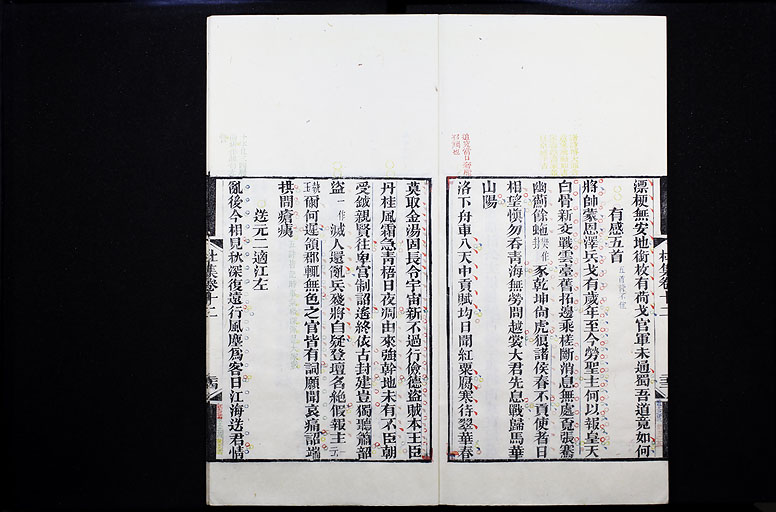 漂梗無安地銜枚有荷戈官軍未通蜀吾道竟如何
有感五首
將帥蒙恩澤兵戈有歲年至今勞聖主何以報皇天
白骨新交戰雲臺舊拓邊乘槎斷消息無處覓張騫
幽薊餘蛇豕乾坤尚虎狼諸侯春不貢使者日
相望慎勿吞青海無勞問越裳大君先息戰歸馬華
山陽
洛下舟車入天中貢賦均日聞紅粟腐寒待翠華春
莫取金湯固長令宇宙新不過行儉德盜賊本王臣
丹桂風霜急青梧日夜凋由來強幹地未有不臣朝
受鉞親賢往卑宮制詔遙終依古封建豈獨聽簫韶
盜一作滅人還亂兵殘將自疑登壇名絕假報主
爾何遲領郡輒無色之官皆有詞願聞哀痛詔端
拱問瘡痍
送元二適江左
亂後今相見秋深復遠行風塵為客日江海送君情
杜集卷十二